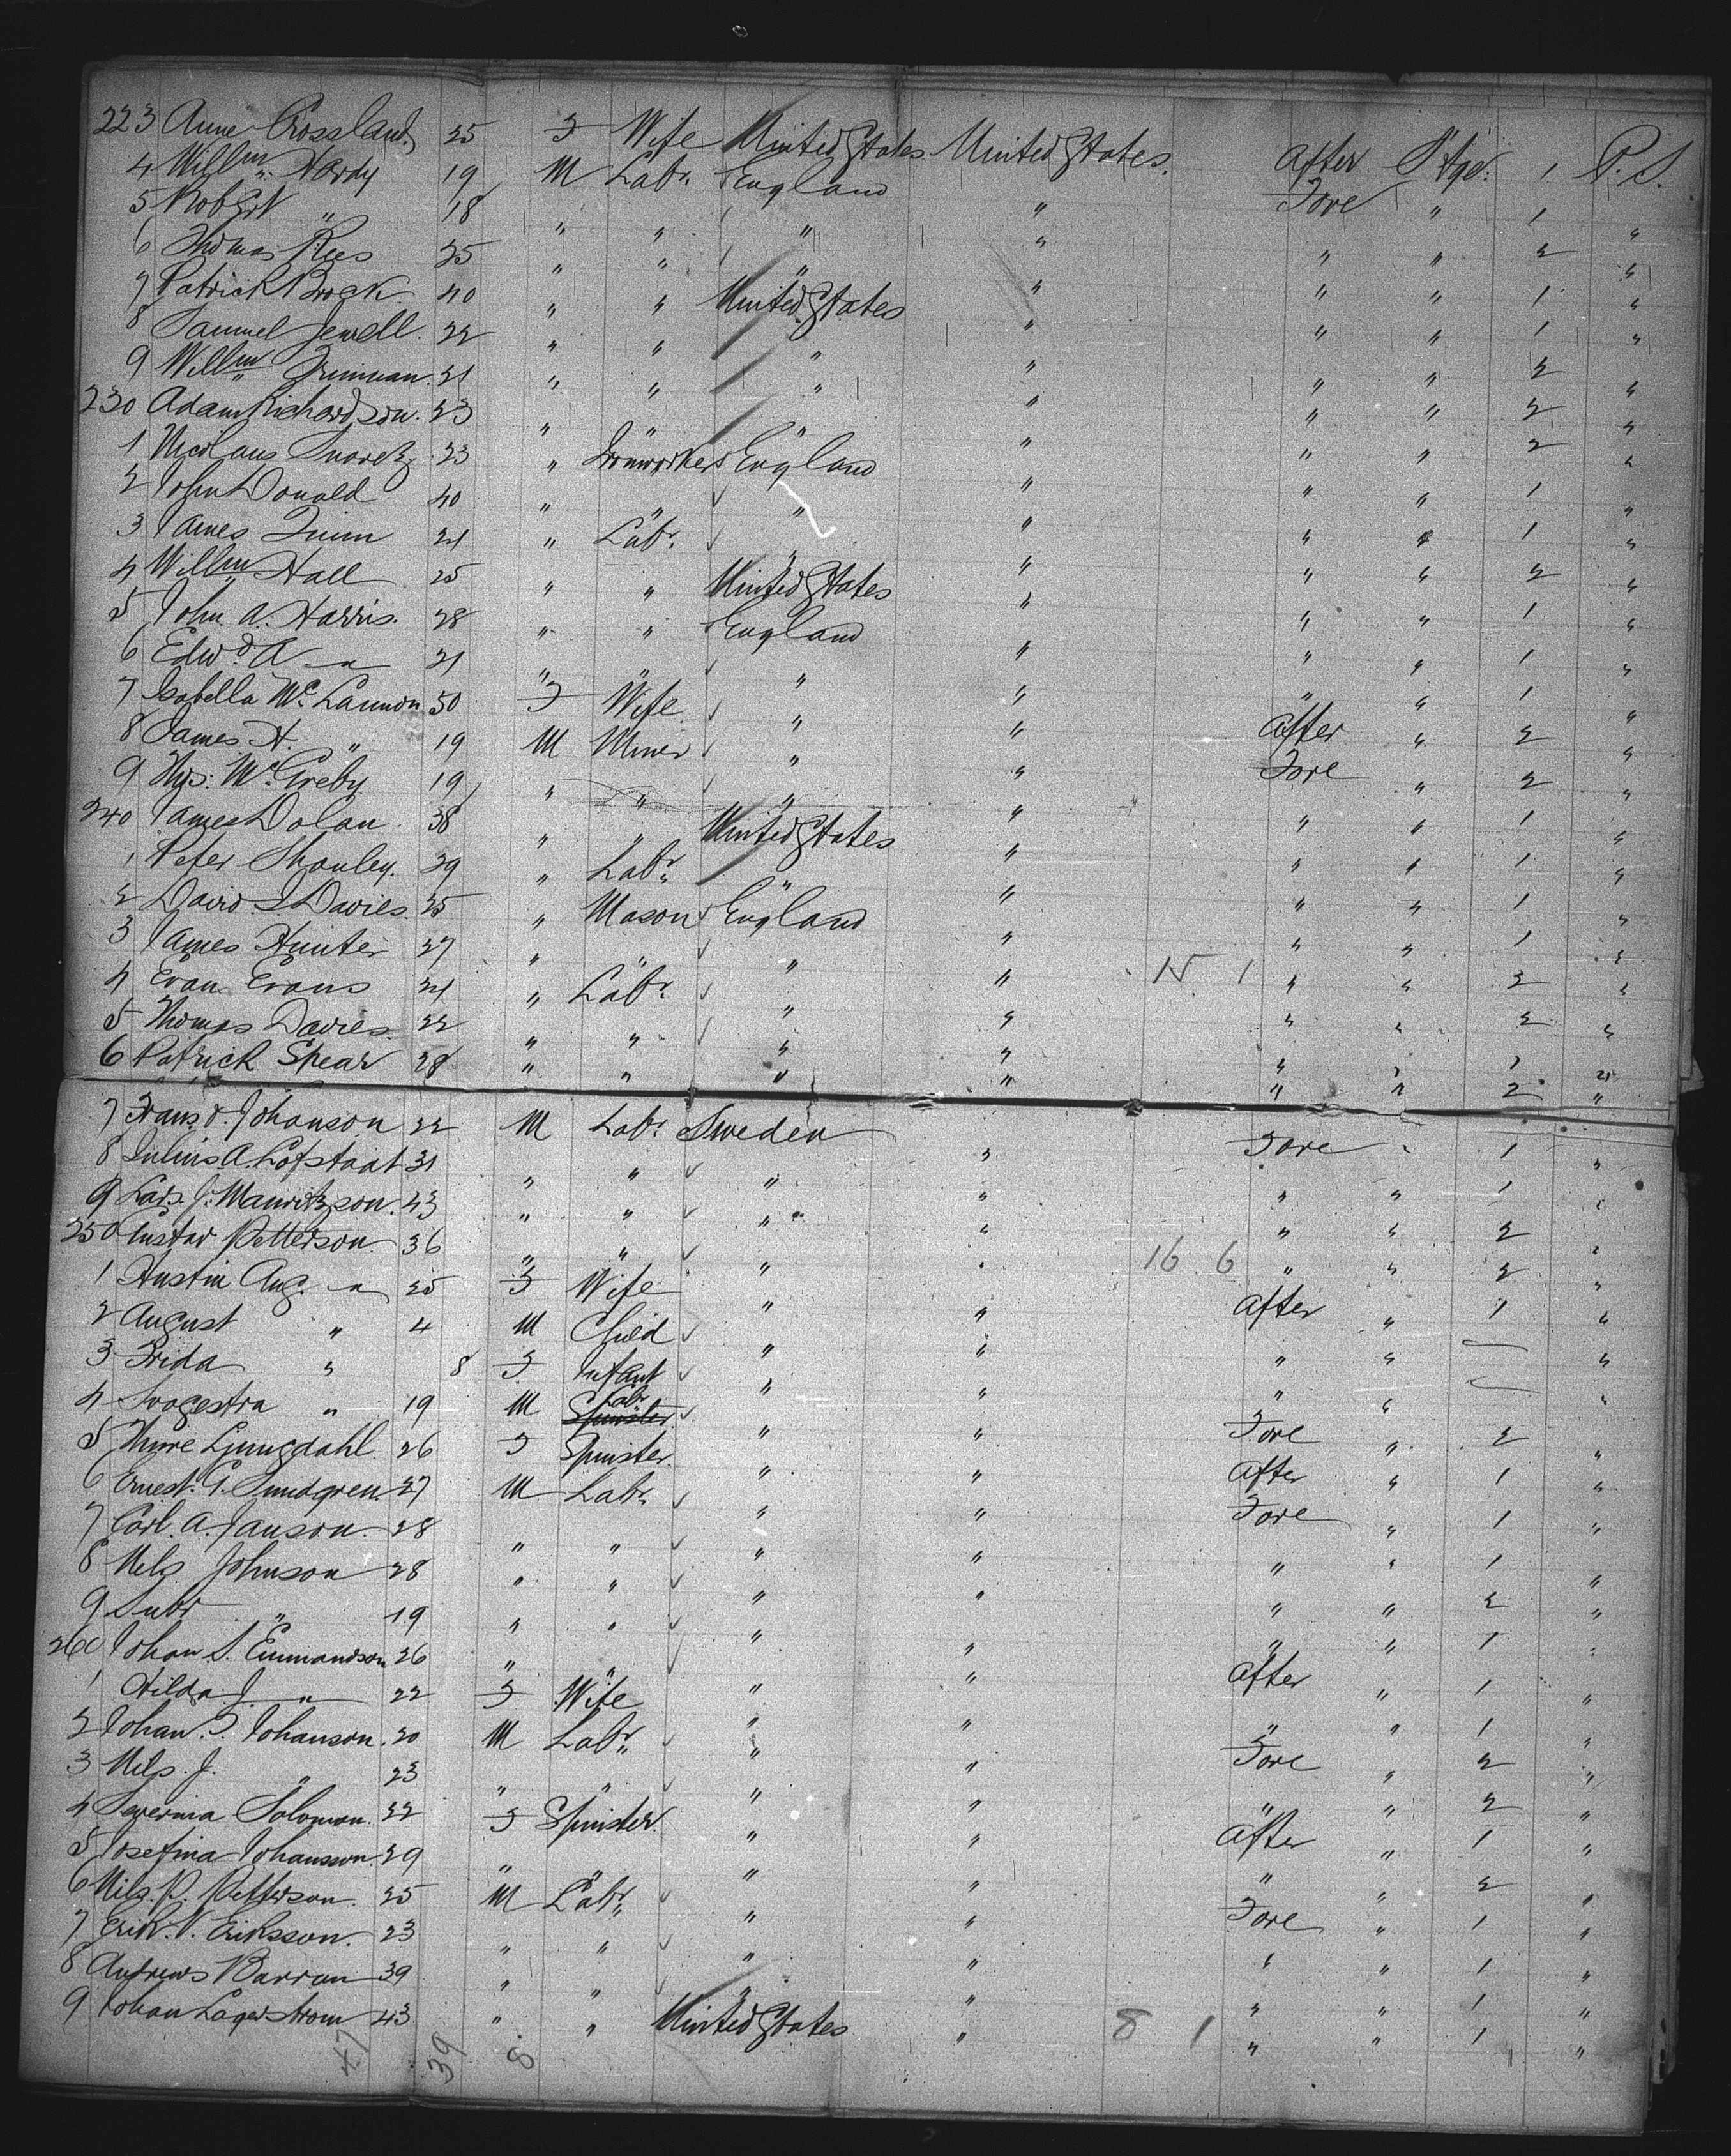 223 Anne Crossland 25 F Wife United States United States. After Stge: 1 P.S.
4 Willm Hardy 19 M Labr. England " Fore " 1 "
5 Robert " 18 " " " " " " 2 "
6 Thomas Rees 25 " " " " " " 1 "
7 Patrick Brock 40 " " United States " " " 1 "
8 Samuel Jewell. 22 " " " " " " 2 "
9 Willm Truman. 21 " " " " " " 2 "
230 Adam Richardson. 23 " " " " " " 2 "
1 Nicolaus 23 " Ironworker England " " " 1 "
2 John Donald 40 " " " " " " 1 "
3 James Quinn 21 " Labr. " " " " 2 "
4 Willm Hall 25 " " United States " " " 1 "
5 John. A. Harris. 28 " " England " " " 1 "
6 Edwd. A " 21 " " " " " " 1 "
7 Isabella Mc. Lannon 50 F Wife " " After " 2 "
8 James H. " 19 M Miner " " Fore " 2 "
9 Mc. Greby 19 " " " " " " 1 "
240 James Dolan 38 " " United States " " " 1 "
1 Peter Shanley. 39 " Labr. " " " " 1 "
2 David J. Davies. 25 " Mason England " " " 1 "
3 James Hunter 27 " " " " " " 2 "
4 Evan Evans 21 " Labr. " " 15. 1 " " 2 "
5 Thomas Davies 22 " " " " " " 1 "
6 Patrick Spear 28 " " " " " " 2 "
7 Frans J. Johanson 22 M Labr Sweden " Fore " 1 "
8 Julius A. Lofstaat 31 " " " " " " 1 "
9 Lars. J. Mauritzson. 43 " " " " " " 2 "
250 Gustav Petterson. 36 " " " " 16. 6 " " 2 "
1 Austin Aug. " 25 F Wife " " After " 1 "
2 August " 4 M Child " " " " "
3 Frida " 8 F Infant " " " " "
4 " 19 M Labr. Spinster " " Fore " 2 "
5 Thure Ljungdahl 26 F Spinster. " " After " 1 "
6 Ernest. G. 27 M Labr. " " Fore " 1 "
7 Carl. A. Janson. 28 " " " " " " 1 "
8 Nels Johnson 28 " " " " " " 2 "
9 " 19 " " " " " " 1 "
260 Johan S. Emmandson 26 " " " " After " 1 "
1 Hilda J. " 22 F Wife " " " " 1 "
2 Johan. Johanson. 20 M Labr. " " Fore " 2 "
3 Nils. J. " 23 " " " " " " 2 "
4 Severina Solomon. 22 F Spinster. " " After " 1 "
5 Josefina Johansson. 29 " " " " " " 2 "
6 Nils. P. Petterson. 25 M Labr. " " Fore " 1 "
7 Erik. V. Eriksson. 23 " " " " " " 1 "
8 Andrews Barran 39 " " " " " " 1 "
9 Johan Lagerstrom 43 " " United States " 8 1 " " 1 "
47 39 8.